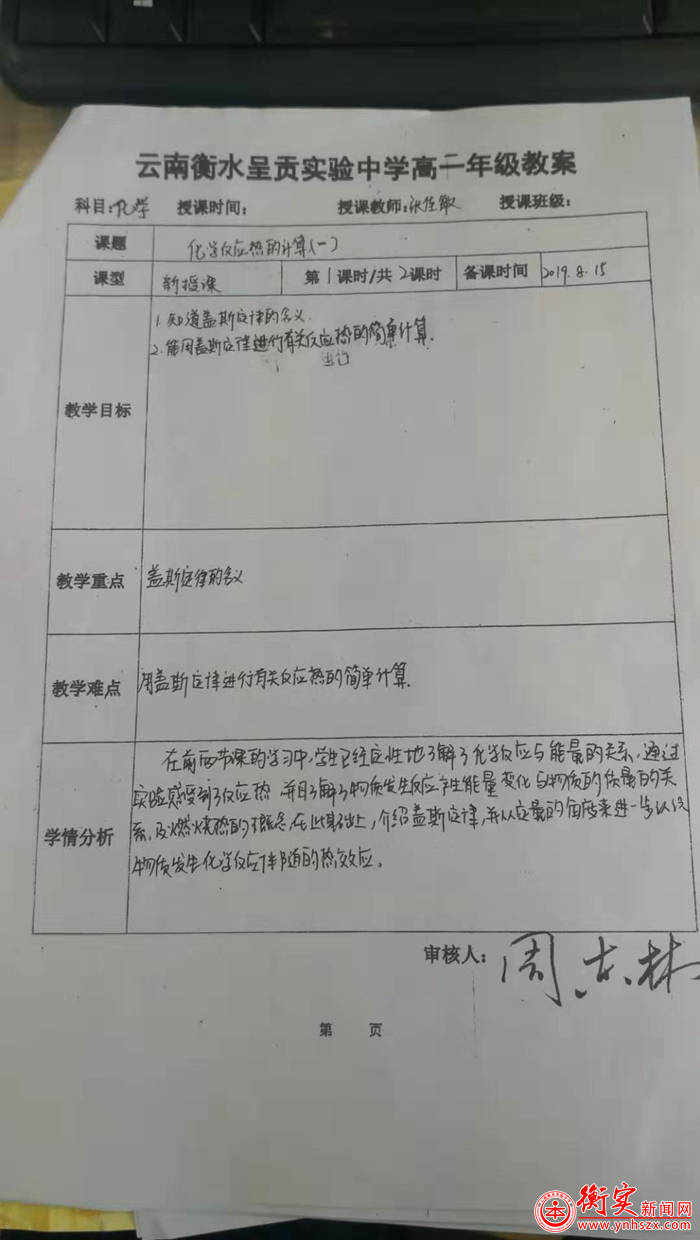 云南衡水呈贡实验中学高二年级教案
科目:化学 授课时间: 授课教师: 授课班级:
课题 化学反应热的计算(一)
课型 新授课 第1课时/共2课时 备课时间 2019.8.15
教学目标
1.知道盖斯定律的含义.
2.能用盖斯定律进行有关反应热的简单计算.
教学重点 盖斯定律的含义
教学难点 用盖斯定律进行有关反应热的简单计算.
学情分析
在前两节课的学习中,学生已经定性地了解了化学反应与能量的关系,通过
实验感受到了反应热,并且了解了物质发生反应产生能量变化与物质的质量的关
系,及燃烧热的概念,在此基础上,介绍盖斯定律,并从定量的角度来进一步认识
物质发生化学反应伴随的热效应。
审核人:
第 页
衡实新闻网
www.ynhszx.com